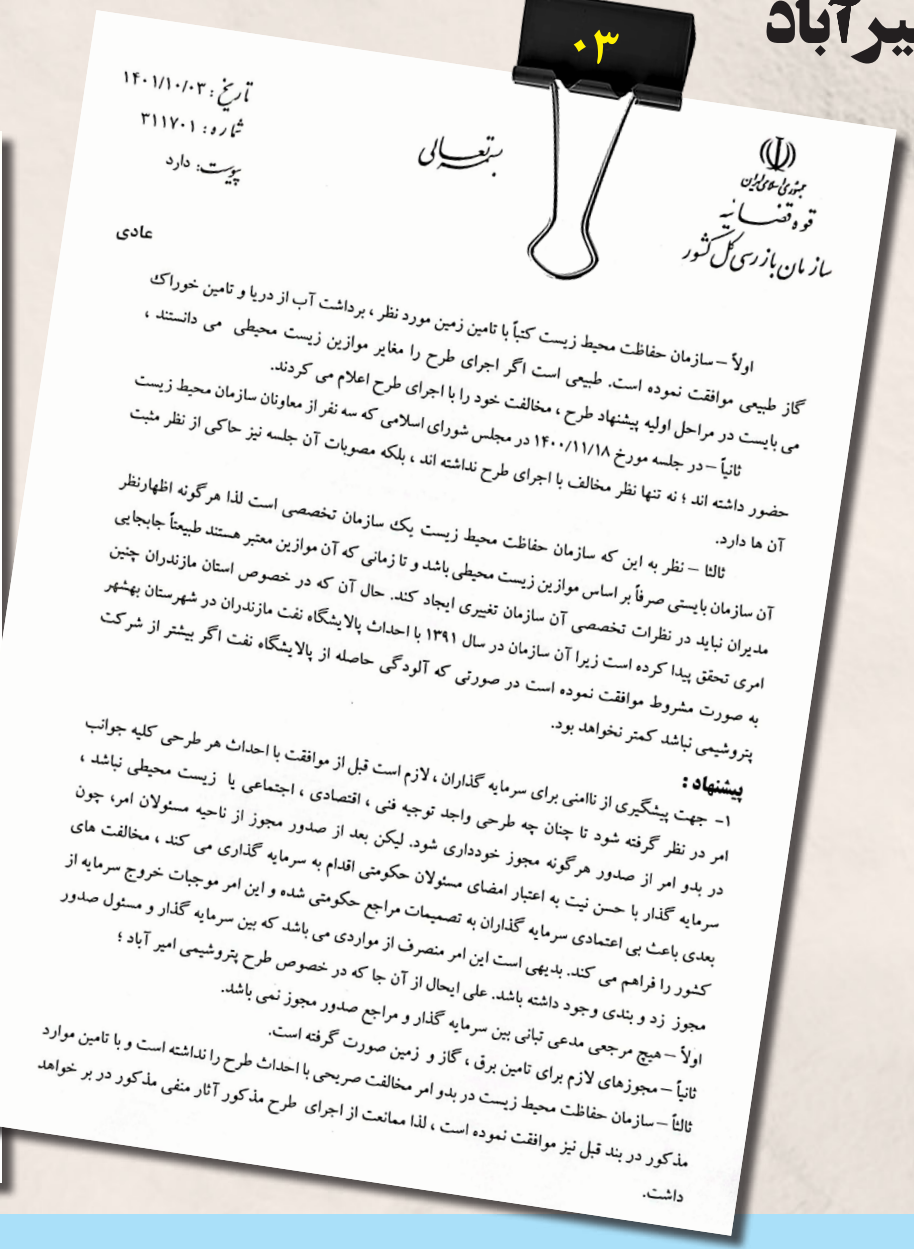 یرآباد
۰۳
تاریخ : ۱۴۰۱/۱۰/۰۳
شماره : ۳۱۱۷۰۱
پیوست: دارد
بسمه تعالی
جمهوری اسلامی ایران
قوه قضائیه
سازمان بازرسی کل کشور
عادی
اولاً – سازمان حفاظت محیط زیست کتباً با تامین زمین مورد نظر ، برداشت آب از دریا و تامین خوراک
گاز طبیعی موافقت نموده است. طبیعی است اگر اجرای طرح را مغایر موازین زیست محیطی می دانستند ،
می بایست در مراحل اولیه پیشنهاد طرح ، مخالفت خود را با اجرای طرح اعلام می کردند.
ثانیاً – در جلسه مورخ ۱۴۰۰/۱۱/۱۸ در مجلس شورای اسلامی که سه نفر از معاونان سازمان محیط زیست
حضور داشته اند ؛ نه تنها نظر مخالف با اجرای طرح نداشته اند ، بلکه مصوبات آن جلسه نیز حاکی از نظر مثبت
آن ها دارد.
ثالثا – نظر به این که سازمان حفاظت محیط زیست یک سازمان تخصصی است لذا هرگونه اظهارنظر
آن سازمان بایستی صرفاً بر اساس موازین زیست محیطی باشد و تا زمانی که آن موازین معتبر هستند طبیعتاً جابجایی
مدیران نباید در نظرات تخصصی آن سازمان تغییری ایجاد کند. حال آن که در خصوص استان مازندران چنین
امری تحقق پیدا کرده است زیرا آن سازمان در سال ۱۳۹۱ با احداث پالایشگاه نفت مازندران در شهرستان بهشهر
به صورت مشروط موافقت نموده است در صورتی که آلودگی حاصله از پالایشگاه نفت اگر بیشتر از شرکت
پتروشیمی نباشد کمتر نخواهد بود.
پیشنهاد :
۱- جهت پیشگیری از ناامنی برای سرمایه گذاران ، لازم است قبل از موافقت با احداث هر طرحی کلیه جوانب
امر در نظر گرفته شود تا چنان چه طرحی واجد توجیه فنی ، اقتصادی ، اجتماعی یا زیست محیطی نباشد ،
در بدو امر از صدور هرگونه مجوز خودداری شود. لیکن بعد از صدور مجوز از ناحیه مسئولان امر، چون
سرمایه گذار با حسن نیت به اعتبار امضای مسئولان حکومتی اقدام به سرمایه گذاری می کند ، مخالفت های
بعدی باعث بی اعتمادی سرمایه گذاران به تصمیمات مراجع حکومتی شده و این امر موجبات خروج سرمایه از
کشور را فراهم می کند. بدیهی است این امر منصرف از مواردی می باشد که بین سرمایه گذار و مسئول صدور
مجوز زد و بندی وجود داشته باشد. علی ایحال از آن جا که در خصوص طرح پتروشیمی امیر آباد ؛
اولاً – هیچ مرجعی مدعی تبانی بین سرمایه گذار و مراجع صدور مجوز نمی باشد.
ثانیاً – مجوزهای لازم برای تامین برق ، گاز و زمین صورت گرفته است.
ثالثاً – سازمان حفاظت محیط زیست در بدو امر مخالفت صریحی با احداث طرح را نداشته است و با تامین موارد
مذکور در بند قبل نیز موافقت نموده است ، لذا ممانعت از اجرای طرح مذکور آثار منفی مذکور در بر خواهد
داشت.